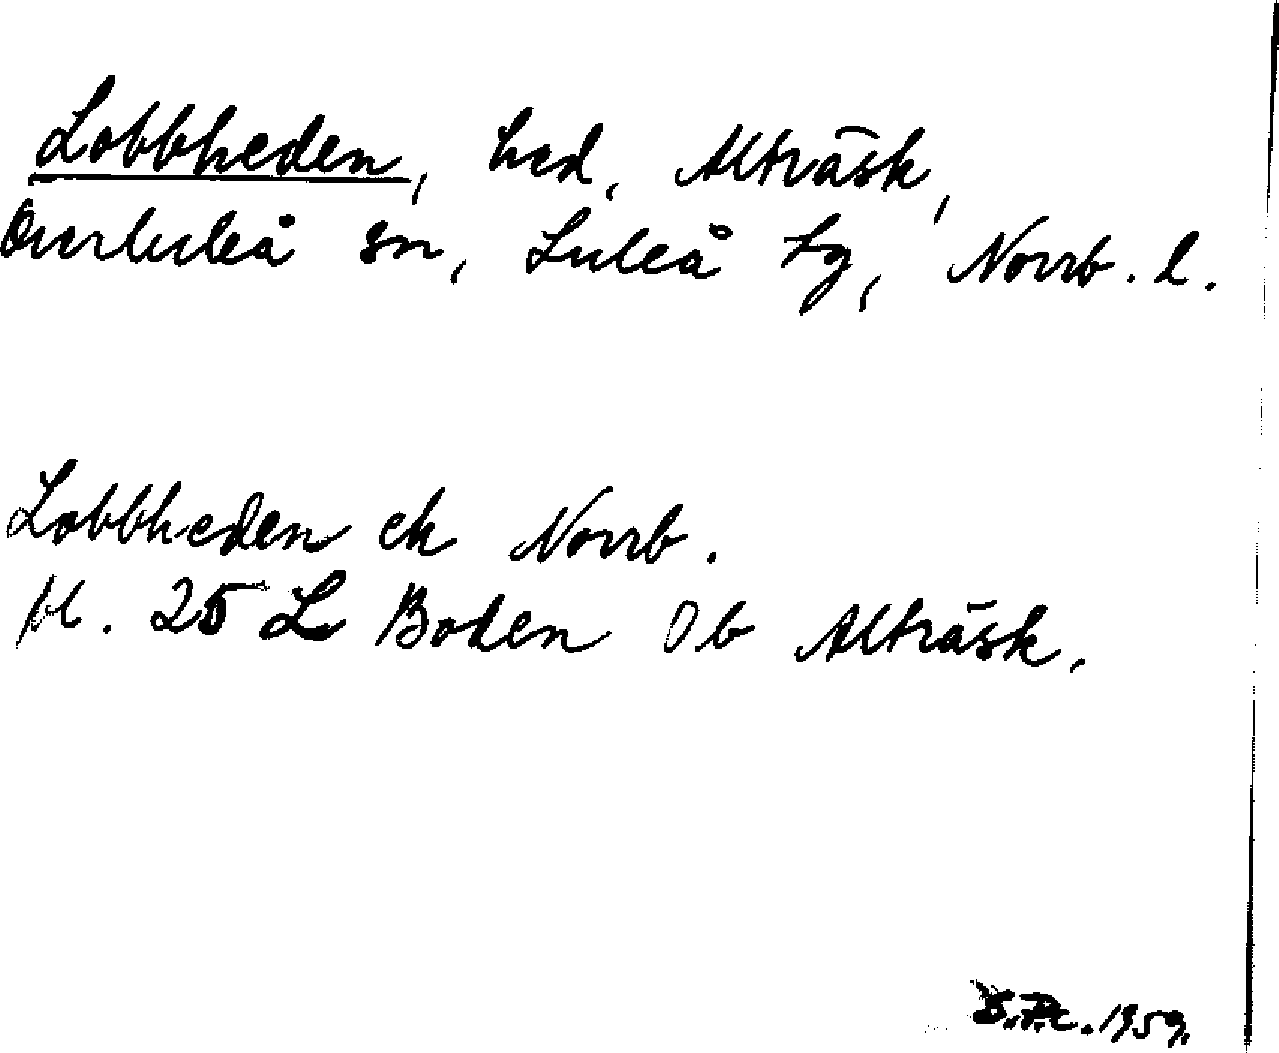 Lobbheden, hed, Alträsk,
Överluleå sn, Luleå tg, Norrb. l.
Lobbheden ek Norrb.
bl. 25 L Boden Ob Alträsk.
1959.